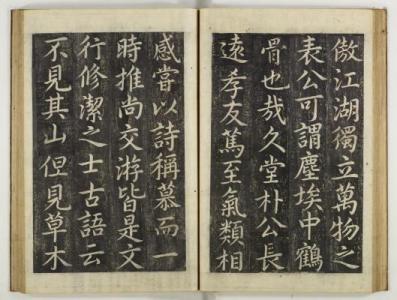 傲江湖獨立萬物之
表公可謂塵埃中鶴
骨也哉久堂朴公長
遠孝友篤至氣類相
感嘗以詩稱慕而一
時推尚交游皆是文
行修潔之士古語云
不見其山但見草木